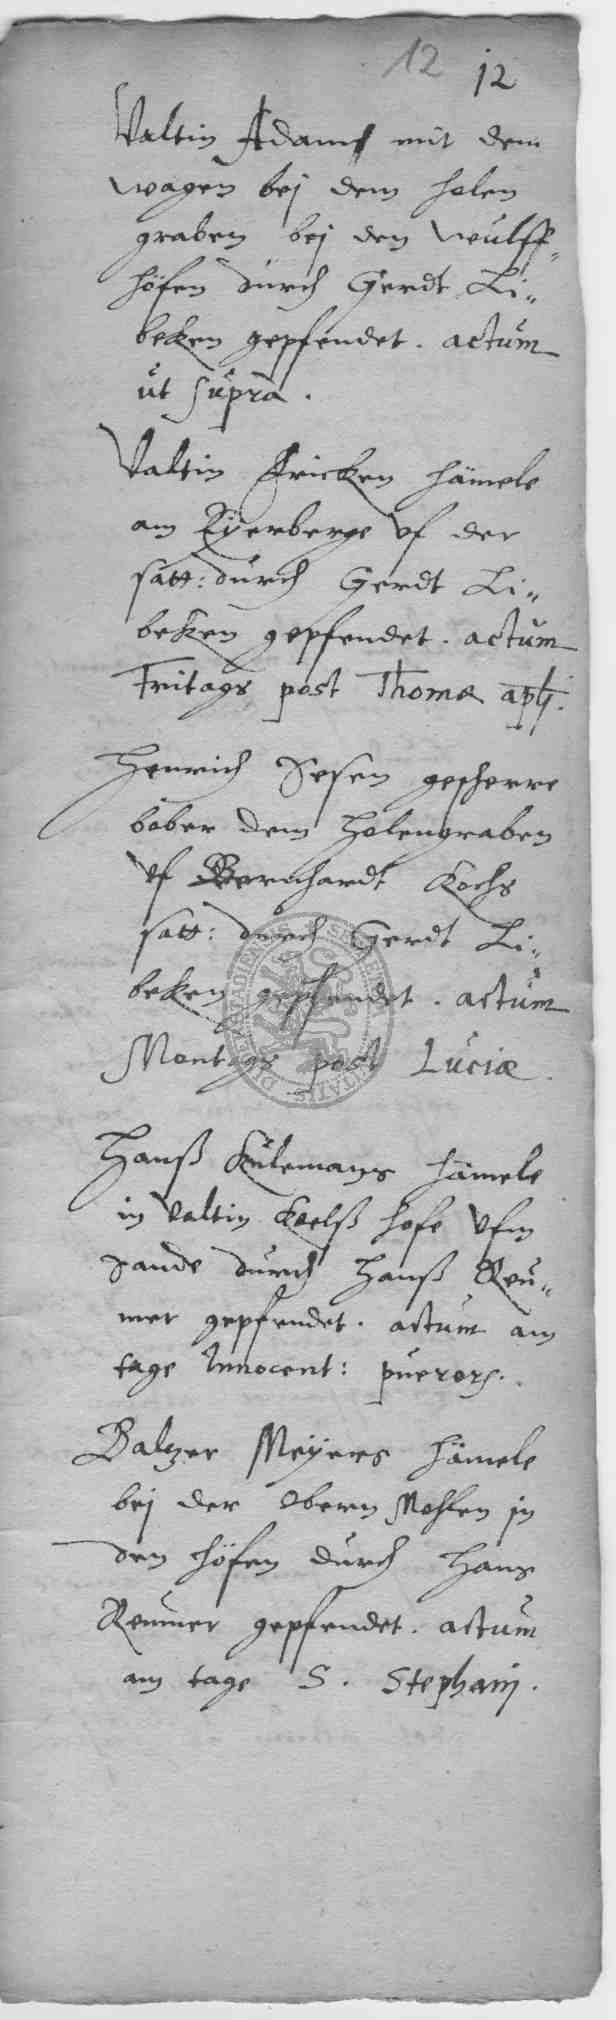 12 12
Valtin Adams mit dem
wagen bej dem holen
graben bej den Wulff„
höfen durch Gerdt Li„
beken gepfendet. actum
ut supra.
Valtin Fricken hämele
am Eÿerberge vf der
satt: durch Gerdt Li„
beken gepfendet. actum
Fritags post Thomæ apli.
Henrich Sesen gescherre
bober dem Holengraben
vf Bernhardt Kochs
satt: durch Gerdt Li„
beken gepfendet. actum
Montags post Luciæ
Hanß Külemans hämele
in Valtin Koelß hofe vfm
Sande durch Hanß Reu„
mer gepfendet. actum am
tage Innocent: pueror.
Baltzer Meÿers hämele
bej der Obern Mohlen in
den höfen durch Hans
Reumer gepfendet. actum
am tage S. Stephanj.